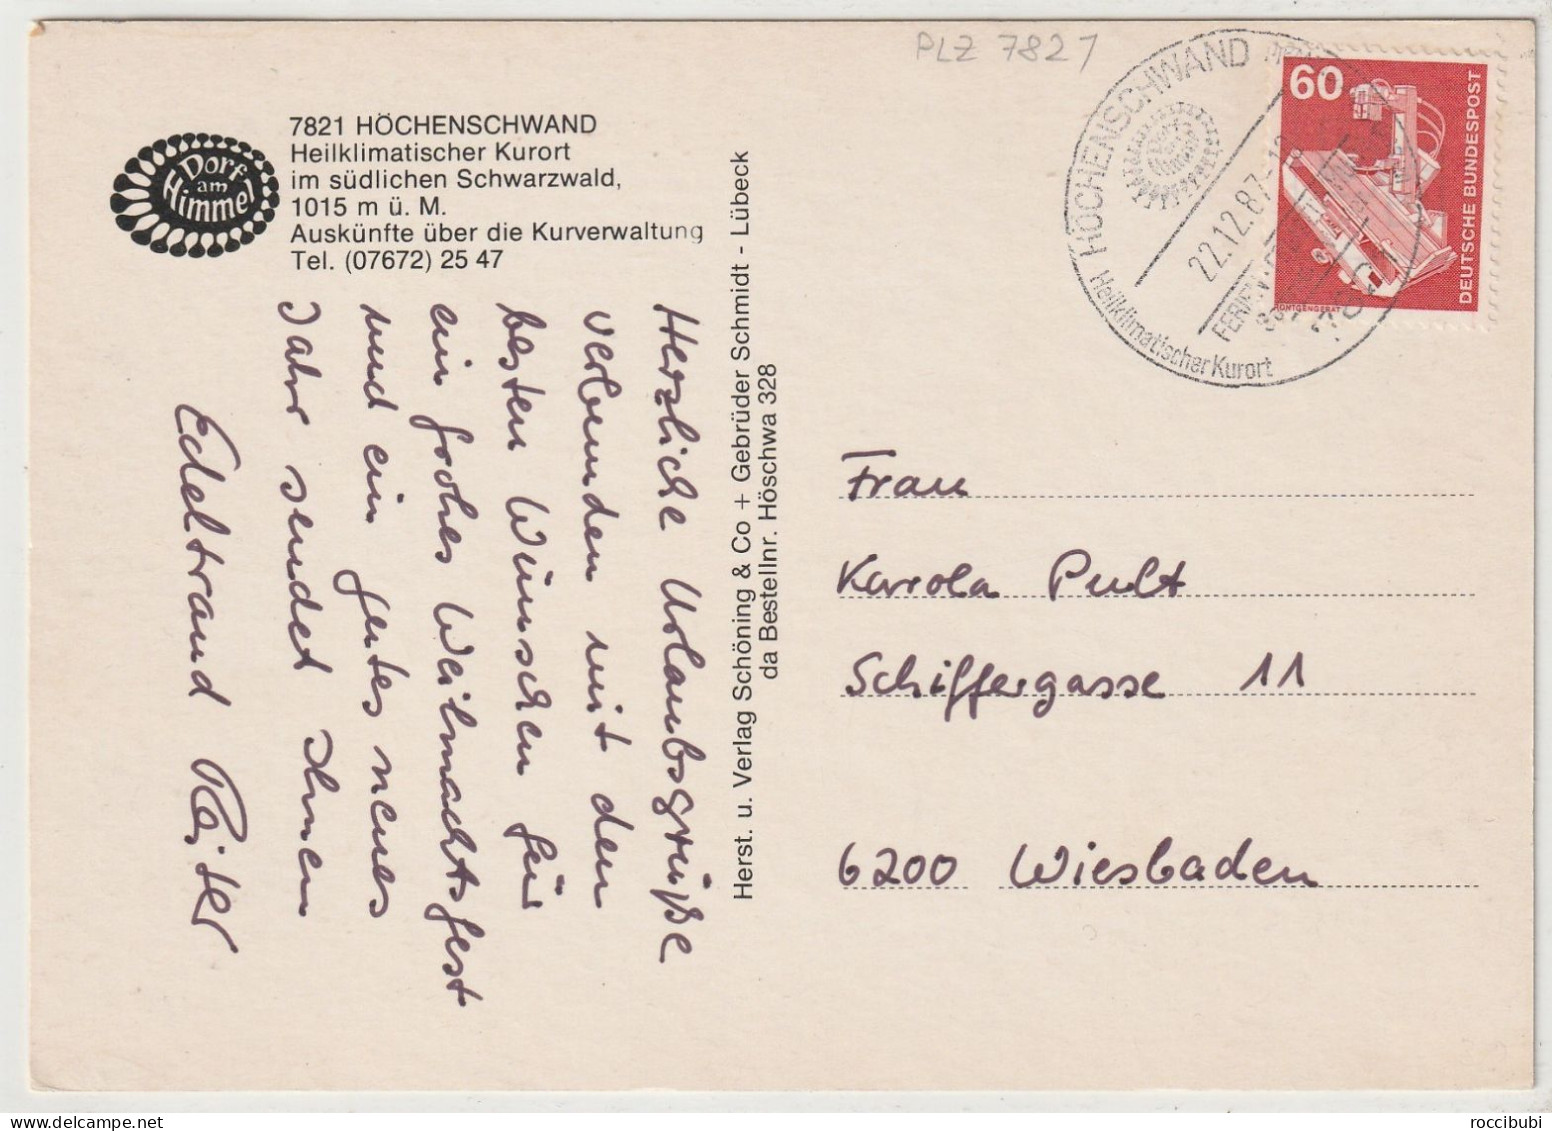 PLZ 7821
Dorf
am
Himmel
7821 HÖCHENSCHWAND
Heilklimatischer Kurort
im südlichen Schwarzwald,
1015 m ü. M.
Auskünfte über die Kurverwaltung
Tel. (07672) 25 47
Herzliche Urlaubsgrüße
verbunden mit den
besten Wünschen für
ein frohes Weihnachtsfest
und ein gutes neues
Jahr sendet Ihnen
Edeltraud
Herst. u. Verlag Schöning & Co + Gebrüder Schmidt - Lübeck
da Bestellnr. Höschwa 328
HÖCHENSCHWAND
22.12.87
FERIEN
Heilklimatischer Kurort
60
DEUTSCHE BUNDESPOST
RÖNTGENGERÄT
Frau
Karola Pult
Schiffergasse 11
6200 Wiesbaden
roccibubi